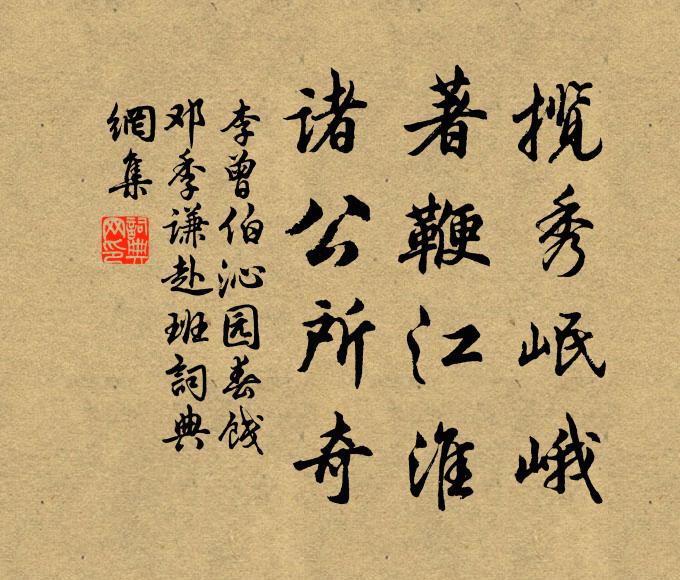 揽秀岷峨
著鞭江淮
诸公所奇
李曾伯沁园春饯
邓季谦赴班詞典
網集
詞典网印